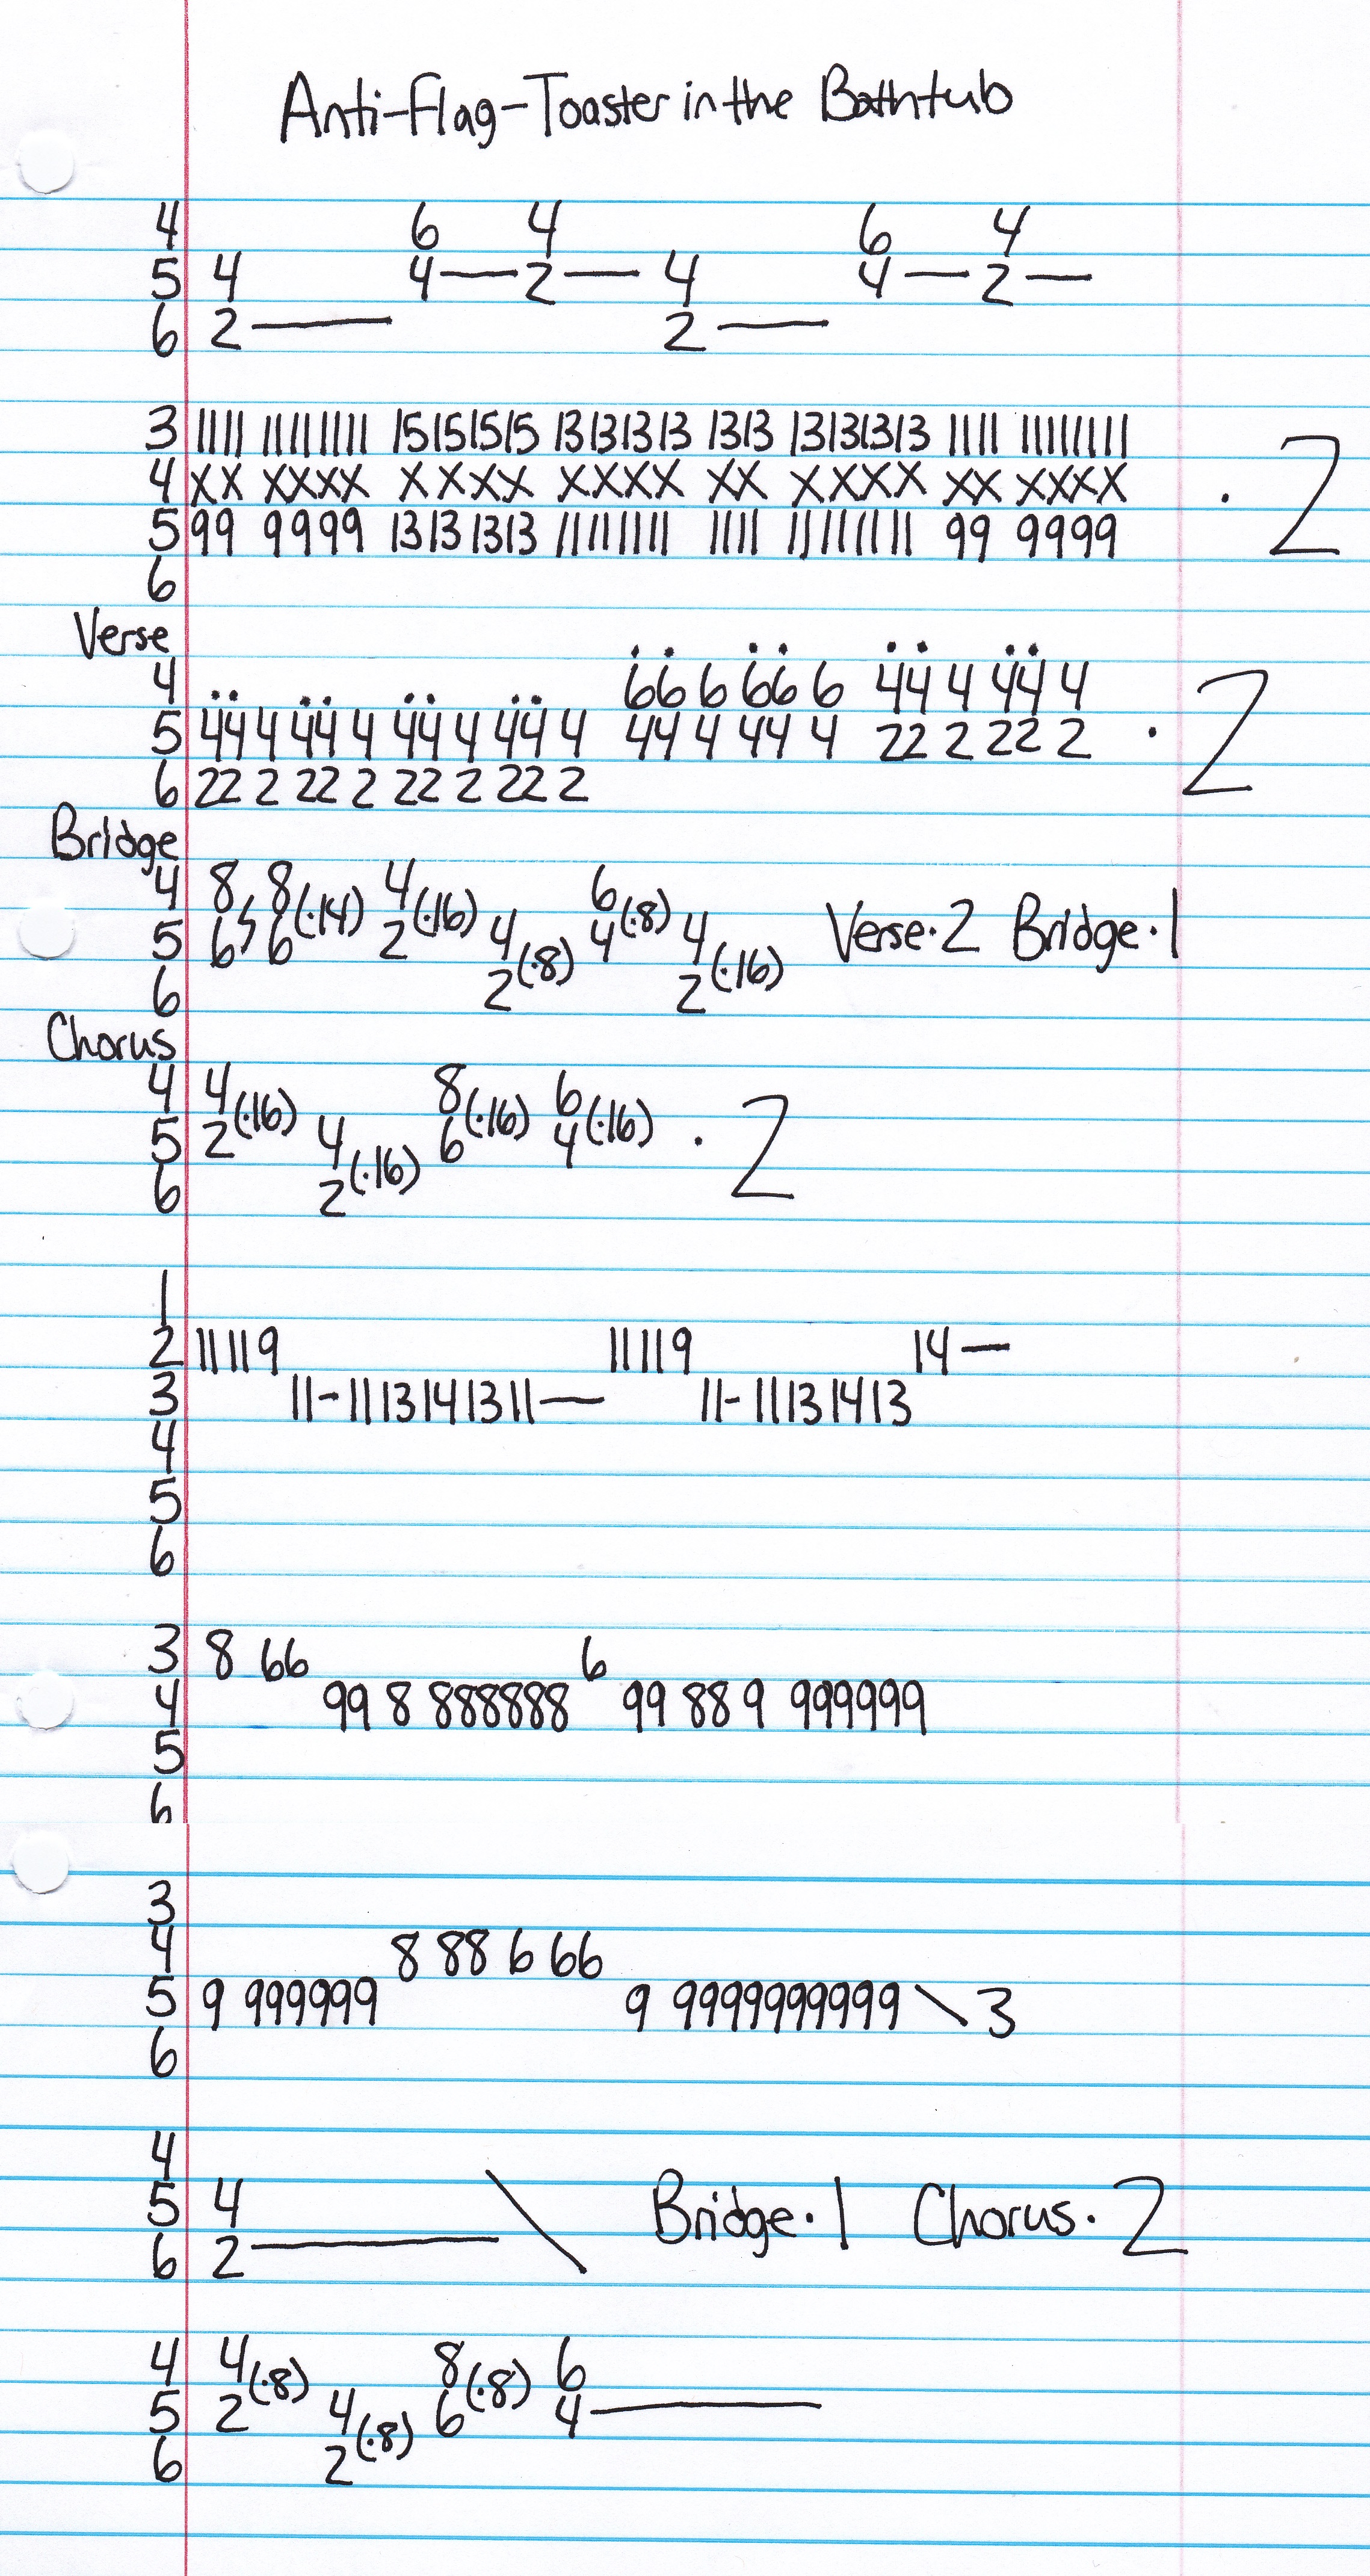 Anti-Flag-Toaster in the Bathtub
4 6 4 6 4
5 4 4—2— 4 4—2—
6 2— 2—
3 1111 11111111 15151515 13131313 1313 13131313 1111 11111111
4 XX XXXX XXXX XXXX XX XXXX XX XXXX · 2
5 99 9999 13131313 11111111 1111 11111111 99 9999
6
Verse
4 66 6 66 6 44 4 44 4
5 44 4 44 4 44 4 44 4 44 4 44 4 22 2 22 2 · 2
6 22 2 22 2 22 2 22 2
Bridge
4 8 8(·14) 4(·16) 6(·8)
5 6 6 2 4(·8) 4 4(·16) Verse·2 Bridge·1
6 2 2
Chorus
4 4(·16) 8(·16) 6(·16)
5 2 4(·16) 6 4 · 2
6 2
1
2 11119 11119 14—
3 11-1113141311— 11-11131413
4
5
6
3 8 66 6
4 99 8 888888 99 88 9 999999
5
6
3
4 8 88 6 66
5 9 999999 9 9999999999\3
6
4
5 4 \ Bridge·1 Chorus·2
6 2—
4 4(·8) 8(·8) 6
5 2 4(·8) 6 4—
6 2